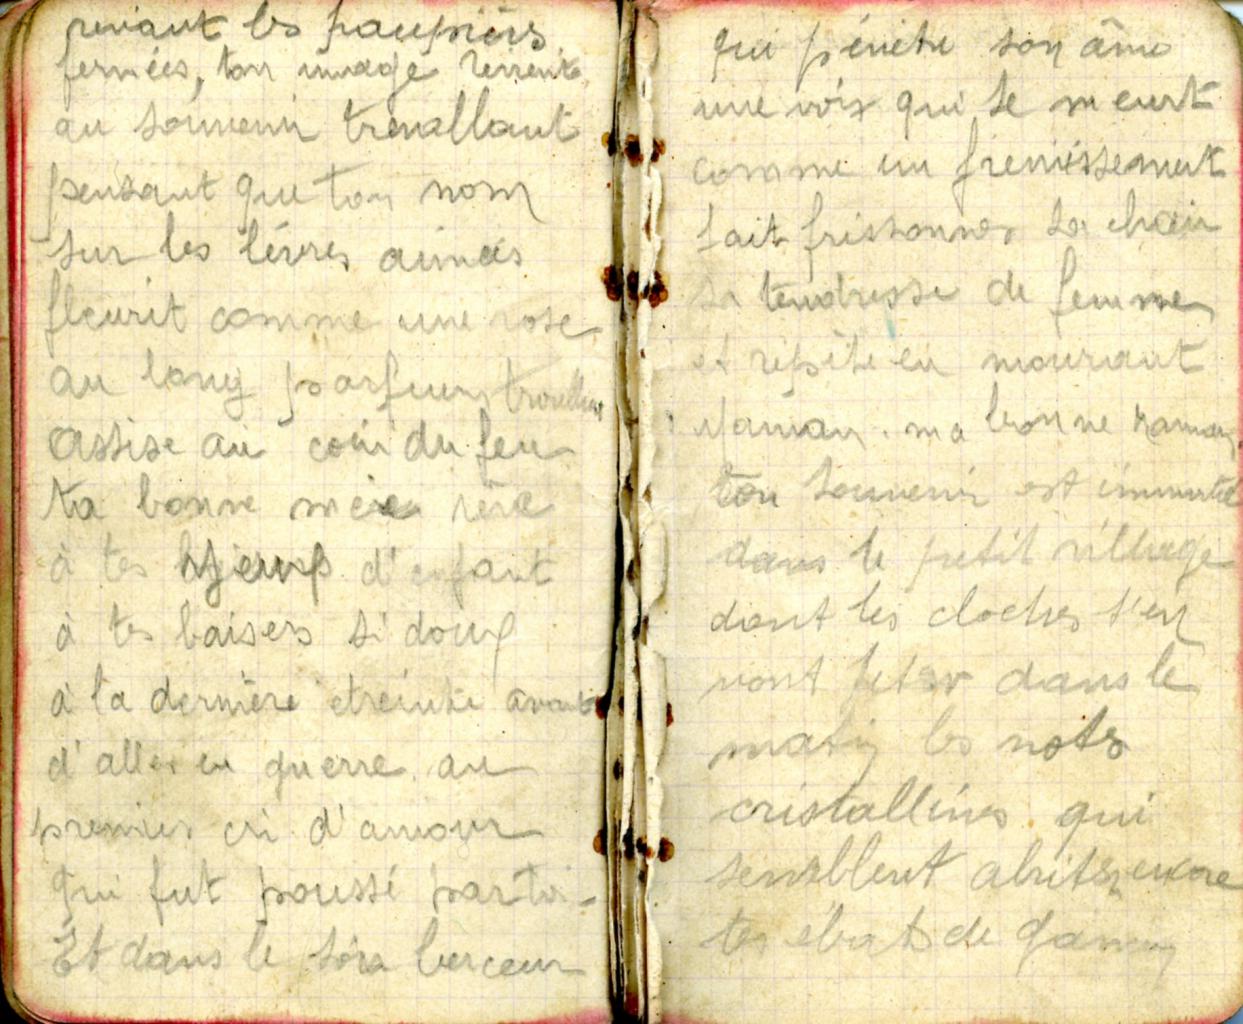 les paupières
fermées, ton image revient
au souvenir tremblant
pensant que ton nom
sur les lèvres aimées
fleurit comme une rose
au long parfum
Assise au coin du feu
ta bonne mère rêve
à tes d'enfant
à tes baisers si doux
à la dernière étreinte avant
d'aller en guerre, au
premier cri d'amour
qui fut poussé par toi.
Et dans le soir berceur
qui pénètre son âme
une voix qui se meurt
comme un fremissement
fait frissonner sa chair
sa tendresse de femme
et répète en mourant
Maman, ma bonne maman,
ton souvenir est
dans le petit village
dont les cloches s'en
vont jeter dans le
matin les nots
cristallines qui
semblent abriter encore
tes ébats de gamin